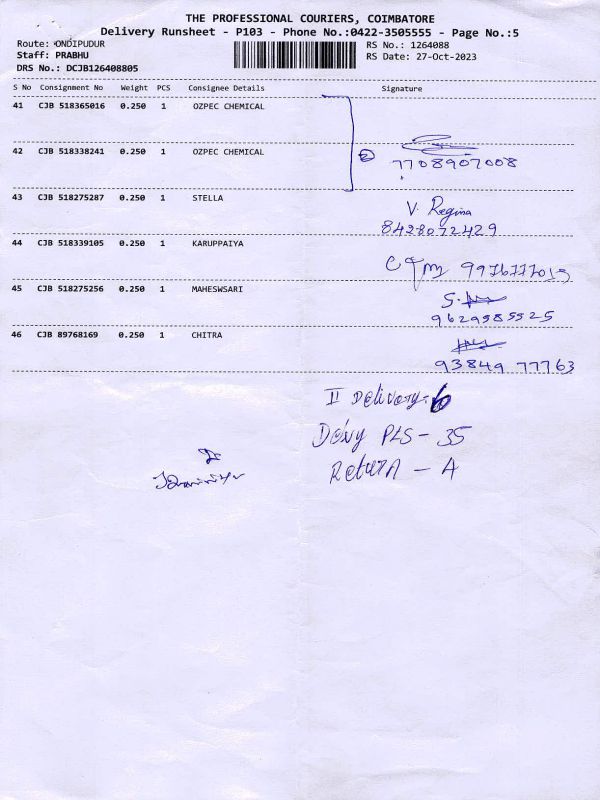 THE PROFESSIONAL COURIERS, COIMBATORE
Delivery Runsheet - P103 - Phone No.:0422-3505555 - Page No.:5
Route: ONDIPUDUR
RS No.: 1264088
Staff: PRABHU
RS Date: 27-Oct-2023
DRS No.: DCJB126408805
S No Consignment No Weight PCS Consignee Details Signature
41 CJB 518365016 0.250 1 OZPEC CHEMICAL
42 CJB 518338241 0.250 1 OZPEC CHEMICAL
7708907008
43 CJB 518275287 0.250 1 STELLA
V. Regina
8428072429
44 CJB 518339105 0.250 1 KARUPPAIYA
45 CJB 518275256 0.250 1 MAHESWSARI
9629585525
46 CJB 89768169 0.250 1 CHITRA
93849 77763
II Delivery - 6
PLS - 35
Return - 4